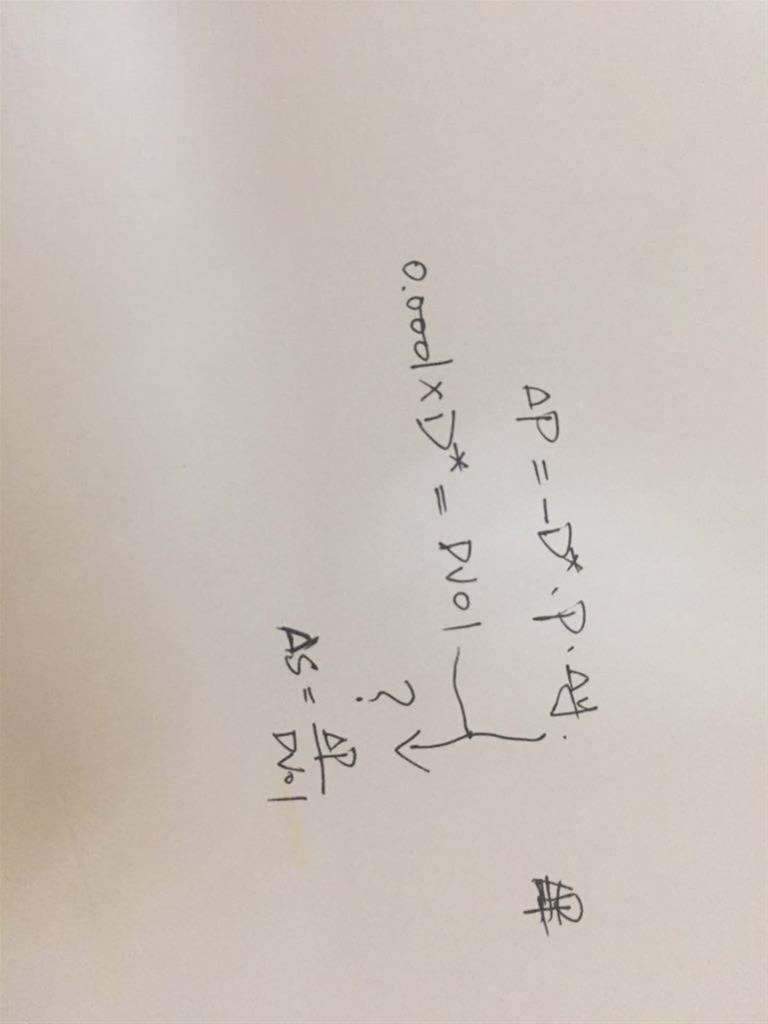 ΔP = -D*. P. Δy.
0.0001 x D* = DV01
?
ΔS = ΔP / DV01